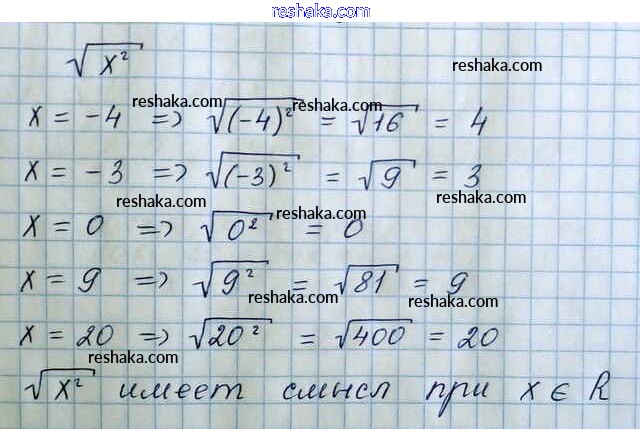 reshaka.com
√x²
reshaka.com
x = -4 => √(-4)² = √16 = 4
reshaka.com reshaka.com
x = -3 => √(-3)² = √9 = 3
reshaka.com reshaka.com
x = 0 => √0² = 0
reshaka.com
x = 9 => √9² = √81 = 9
reshaka.com reshaka.com
x = 20 => √20² = √400 = 20
reshaka.com reshaka.com
√x² имеет смысл при x ∈ R